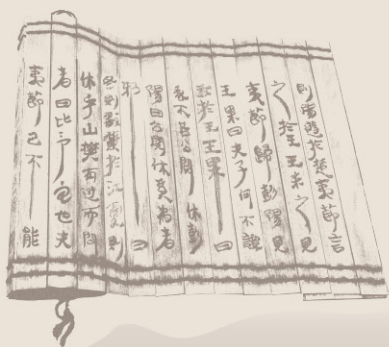 則陽遊於楚夷節言
之於王王未之見
夷節歸彭陽見
王果曰夫子何不譚
我於王王果曰
我不若公閱休彭
陽曰公閱休奚為者
邪曰
冬則擉鱉於江夏則
休乎山樊有過而問
者曰此予宅也夫
夷節已不能